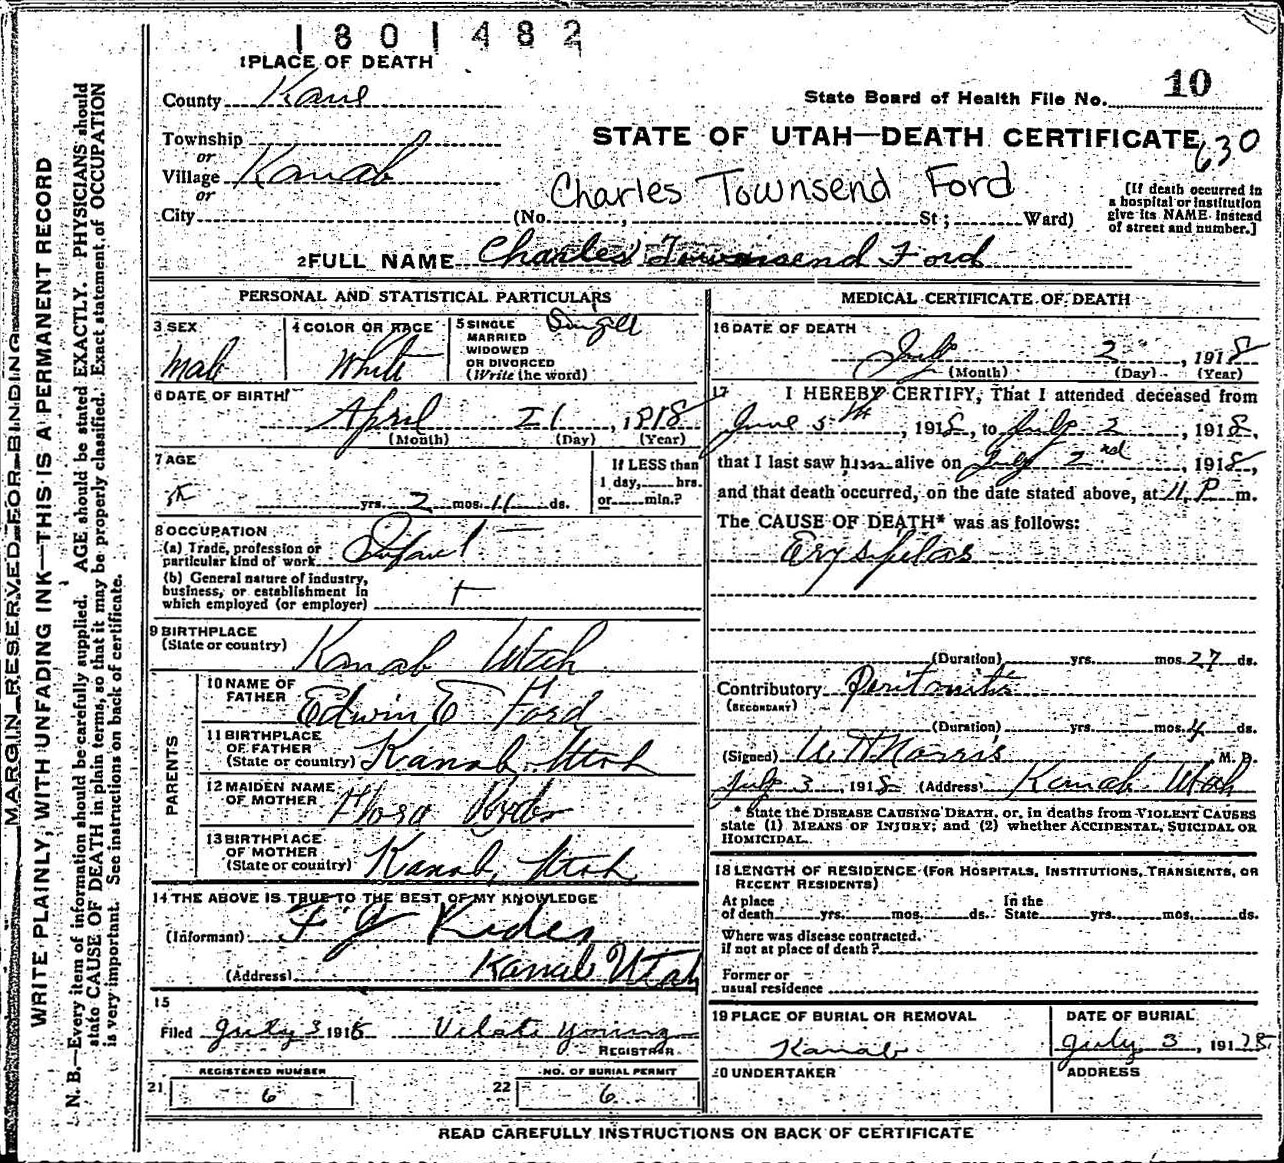 1801482
1 PLACE OF DEATH
County Kane
State Board of Health File No. 10
Township
or
Village Kanab
or
City
STATE OF UTAH—DEATH CERTIFICATE
630
Charles Townsend Ford
(No. , St ; Ward)
[If death occurred in
a hospital or institution
give its NAME instead
of street and number.]
2 FULL NAME Charles Townsend Ford
PERSONAL AND STATISTICAL PARTICULARS
3 SEX
Male
4 COLOR OR RACE
White
5 SINGLE
MARRIED
WIDOWED
OR DIVORCED
(Write the word)
Single
6 DATE OF BIRTH
April 21, 1918
(Month) (Day) (Year)
7 AGE
yrs. 2 mos. 11 ds.
If LESS than
1 day, hrs.
or min.?
8 OCCUPATION
(a) Trade, profession or
particular kind of work Infant
(b) General nature of industry,
business, or establishment in
which employed (or employer)
9 BIRTHPLACE
(State or country) Kanab Utah
PARENTS
10 NAME OF
FATHER Edwin E Ford
11 BIRTHPLACE
OF FATHER
(State or country) Kanab, Utah
12 MAIDEN NAME
OF MOTHER Flora
13 BIRTHPLACE
OF MOTHER
(State or country) Kanab, Utah
14 THE ABOVE IS TRUE TO THE BEST OF MY KNOWLEDGE
(Informant) F
(Address) Kanab Utah
15
Filed July 3 1918 Young
REGISTRAR
21 REGISTERED NUMBER
6
22 NO. OF BURIAL PERMIT
6
MEDICAL CERTIFICATE OF DEATH
16 DATE OF DEATH
July 2, 1918
(Month) (Day) (Year)
17 I HEREBY CERTIFY, That I attended deceased from
June 5th, 1918, to July 2, 1918,
that I last saw him alive on July 2nd, 1918,
and that death occurred, on the date stated above, at 11 P m.
The CAUSE OF DEATH* was as follows:
Erysipelas
(Duration) yrs. mos. 27 ds.
Contributory Peritonitis
(SECONDARY)
(Duration) yrs. mos. 4 ds.
(Signed) Norris M. D.
July 3, 1918 (Address) Kanab Utah
* State the DISEASE CAUSING DEATH, or, in deaths from VIOLENT CAUSES
state (1) MEANS OF INJURY; and (2) whether ACCIDENTAL, SUICIDAL OR
HOMICIDAL.
18 LENGTH OF RESIDENCE (FOR HOSPITALS, INSTITUTIONS, TRANSIENTS, OR
RECENT RESIDENTS)
At place
of death yrs. mos. ds.
In the
State yrs. mos. ds.
Where was disease contracted,
if not at place of death?
Former or
usual residence
19 PLACE OF BURIAL OR REMOVAL
Kanab
DATE OF BURIAL
July 3, 1918
20 UNDERTAKER
ADDRESS
READ CAREFULLY INSTRUCTIONS ON BACK OF CERTIFICATE
MARGIN RESERVED FOR BINDING
WRITE PLAINLY, WITH UNFADING INK—THIS IS A PERMANENT RECORD
N. B.—Every item of information should be carefully supplied. AGE should be stated EXACTLY. PHYSICIANS should
state CAUSE OF DEATH in plain terms, so that it may be properly classified. Exact statement of OCCUPATION
is very important. See instructions on back of certificate.